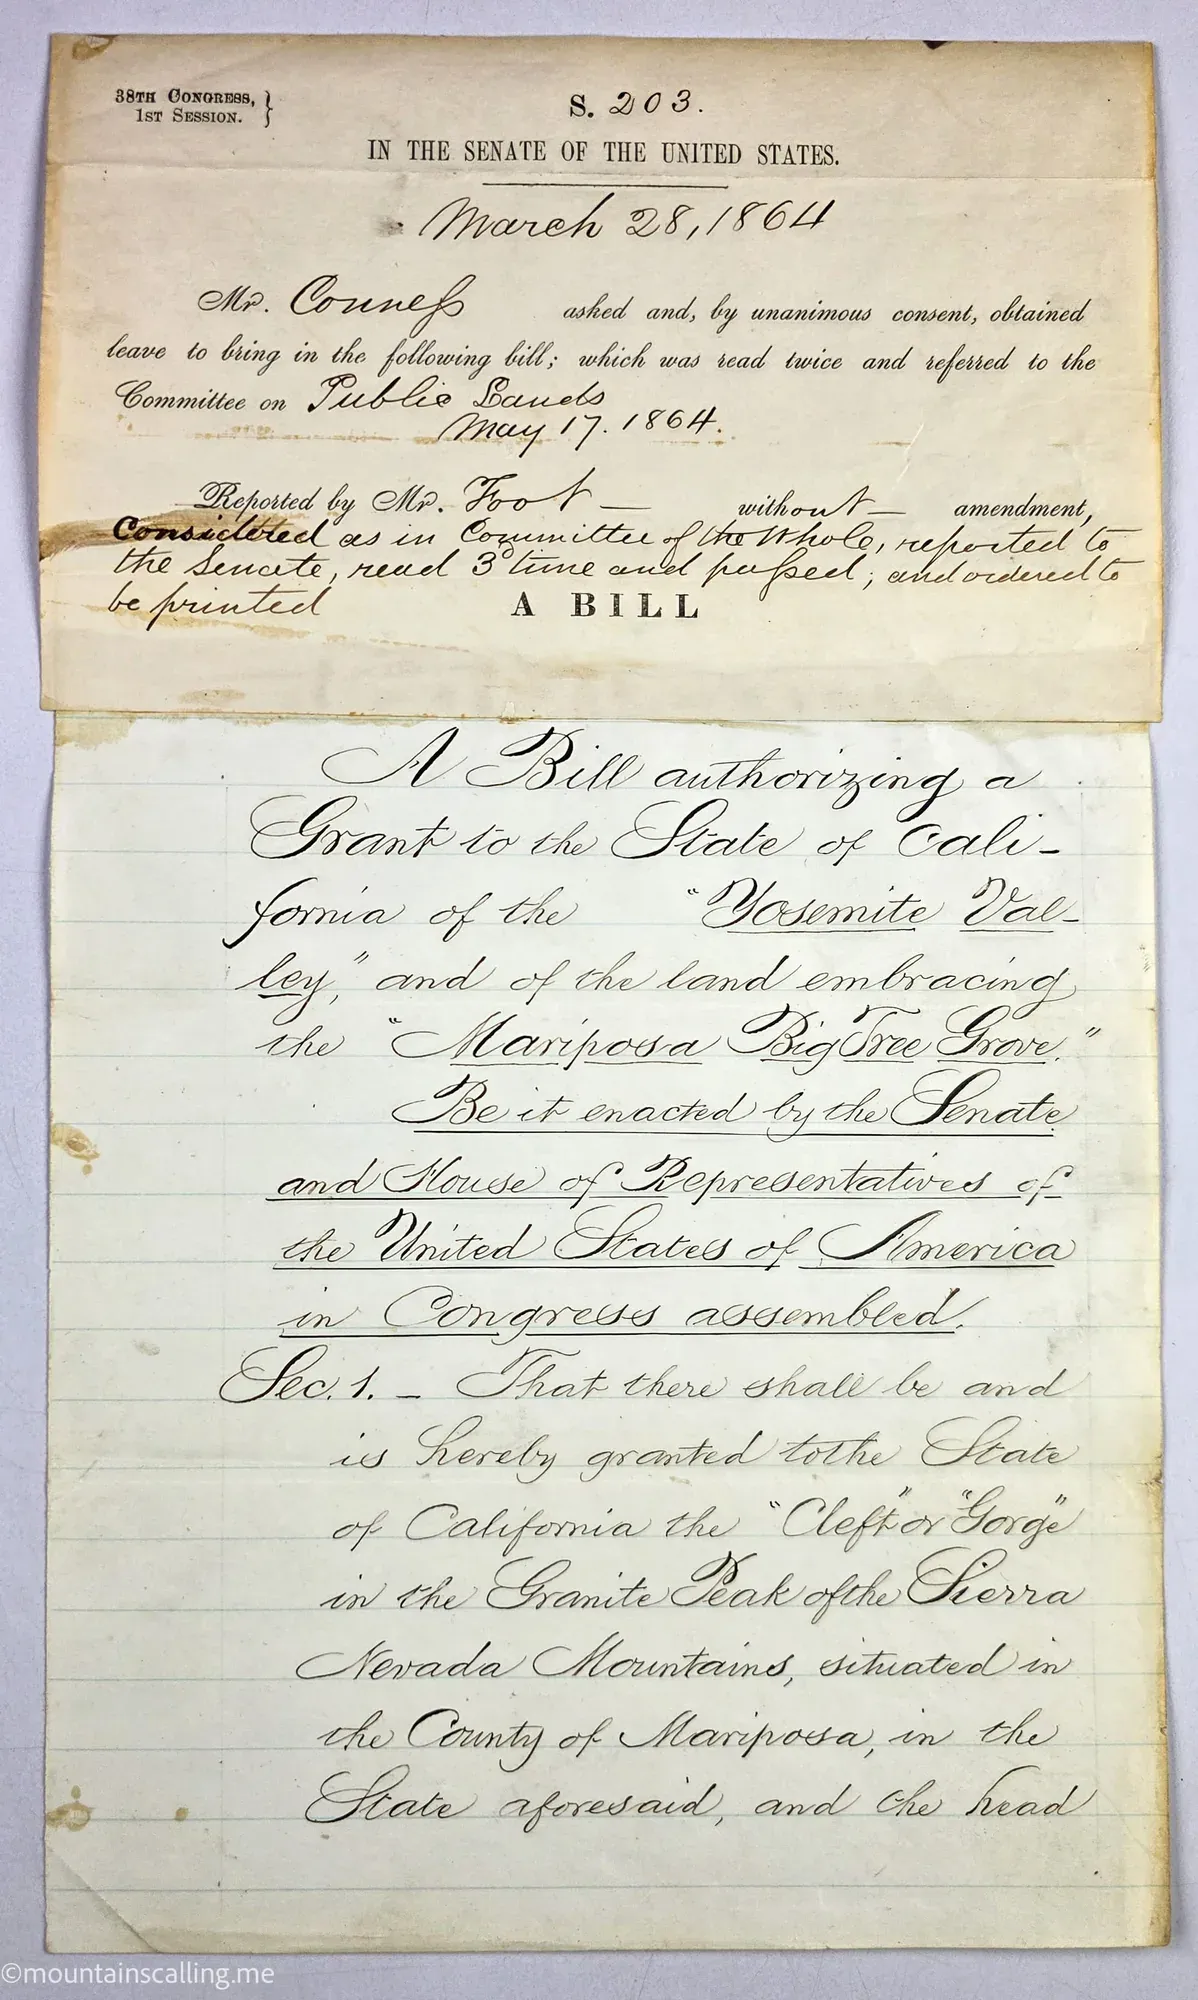 38TH CONGRESS,
1ST SESSION. }
S. 203.
IN THE SENATE OF THE UNITED STATES.
March 28, 1864
Mr. Conness asked and, by unanimous consent, obtained
leave to bring in the following bill; which was read twice and referred to the
Committee on Public Lands
May 17. 1864.
Reported by Mr. Foot — without — amendment,
Considered as in Committee of the Whole, reported to
the Senate, read 3d time and passed; and ordered to
be printed
A BILL
A Bill authorizing a
Grant to the State of Cali-
fornia of the "Yosemite Val-
ley," and of the land embracing
the "Mariposa Big Tree Grove."
Be it enacted by the Senate
and House of Representatives of
the United States of America
in Congress assembled.
Sec. 1. — That there shall be and
is hereby granted to the State
of California the "Cleft" or "Gorge"
in the Granite Peak of the Sierra
Nevada Mountains, situated in
the County of Mariposa, in the
State aforesaid, and the head
©mountainscalling.me